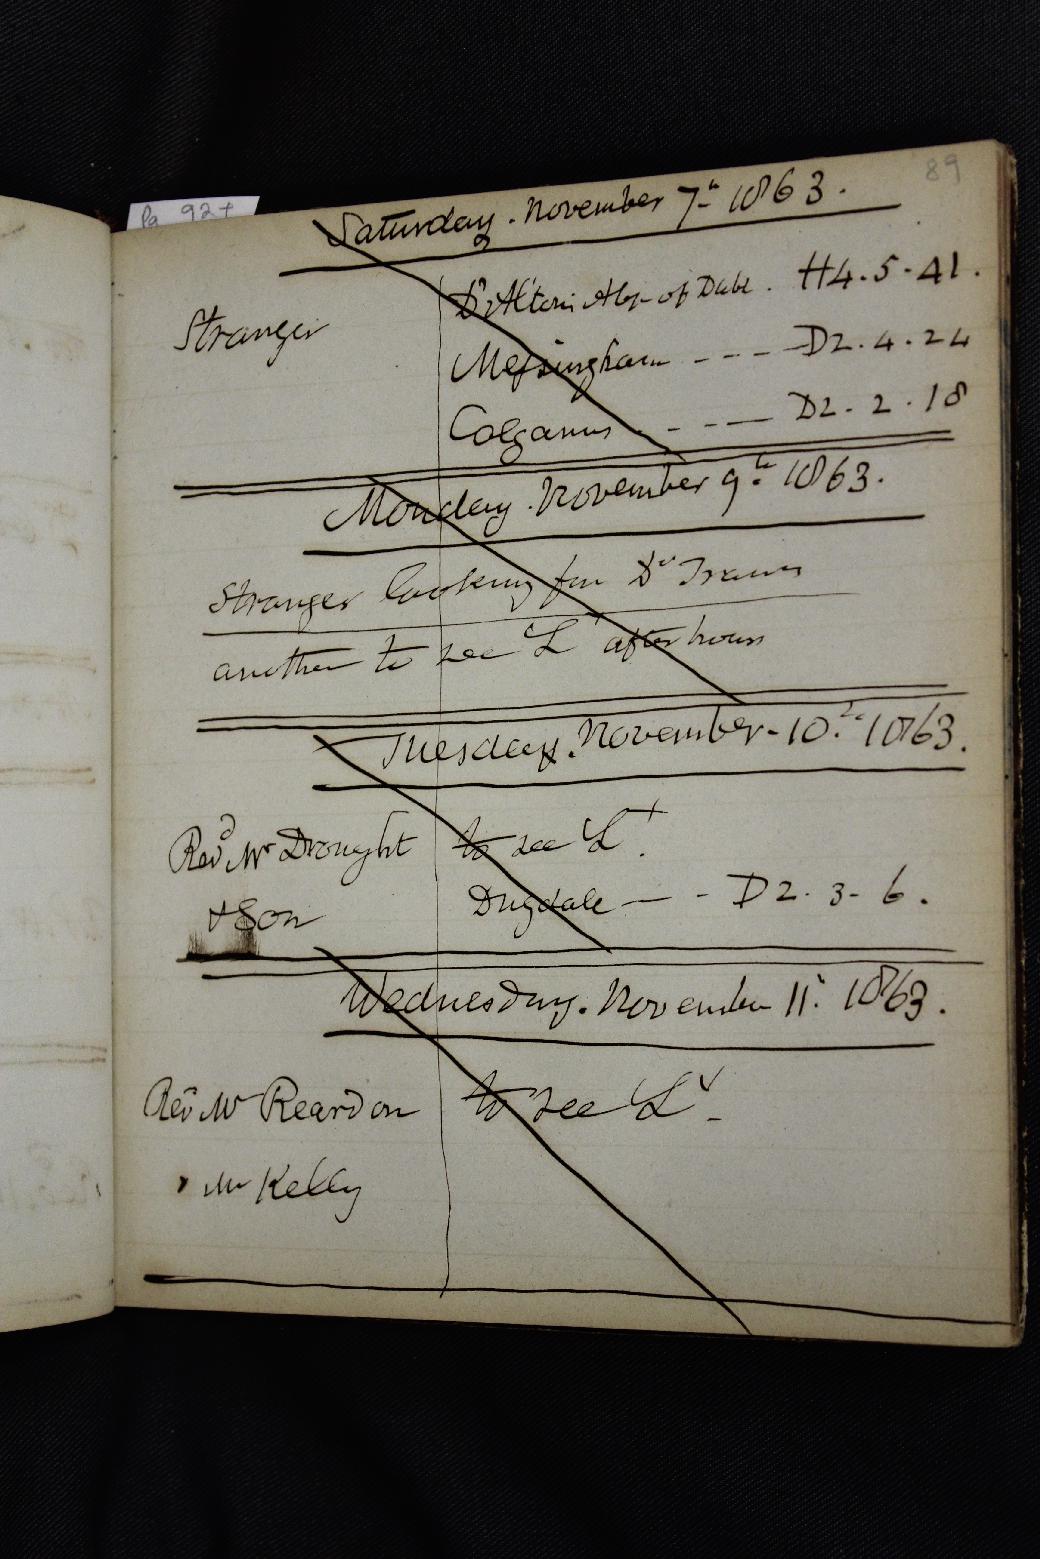 89
Pg 92+
Saturday. November 7th 1863.
Stranger
D'Alton's Abps of Dubl. H4.5.41.
Messingham - - - - D2.4.24
Colganus - - - - D2.2.18
Monday. November 9th 1863.
Stranger looking for Dr Travers
another to see Ly after hours
Tuesday. November 10th 1863.
Revd Mr Drought to see Ly.
Dugdale - - D2.3.6.
& Son
Wednesday. November 11th 1863.
Revd Mr Reardon to see Ly -
" Mr Kelly